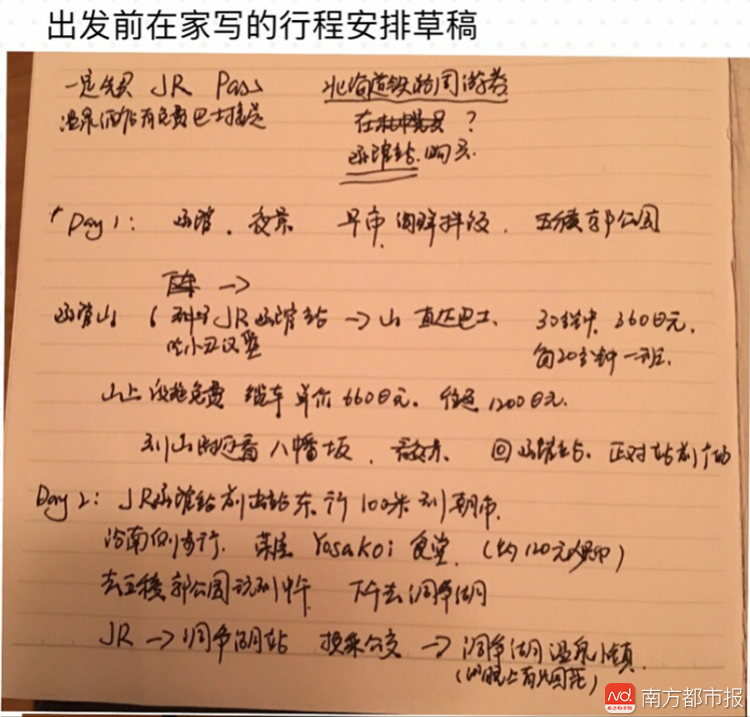 出发前在家写的行程安排草稿
一定先买 JR Pass 北海道铁路周游券
温泉酒店有免费巴士接送 在札幌买?
函馆站购买.
Day 1: 函馆. 夜景 早市 海鲜拌饭. 五稜郭公园
下车 →
函馆山 JR函馆站 → 山 直达巴士. 30分钟. 360日元.
吃小丑汉堡 每20分钟一班.
山上设施免费 缆车 单价660日元. 往返1200日元.
到山附近看八幡坂. 回函馆站. 正对站前广场
Day 2: JR函馆站前出站东行100米到朝市.
沿南侧步行. 茶屋 Yosakoi 食堂. (约120元人民币)
去五稜郭公园玩到中午 下午去洞爷湖
JR → 洞爷湖站 换乘公交 → 洞爷湖温泉小镇.
(晚上有烟花)
南方都市报